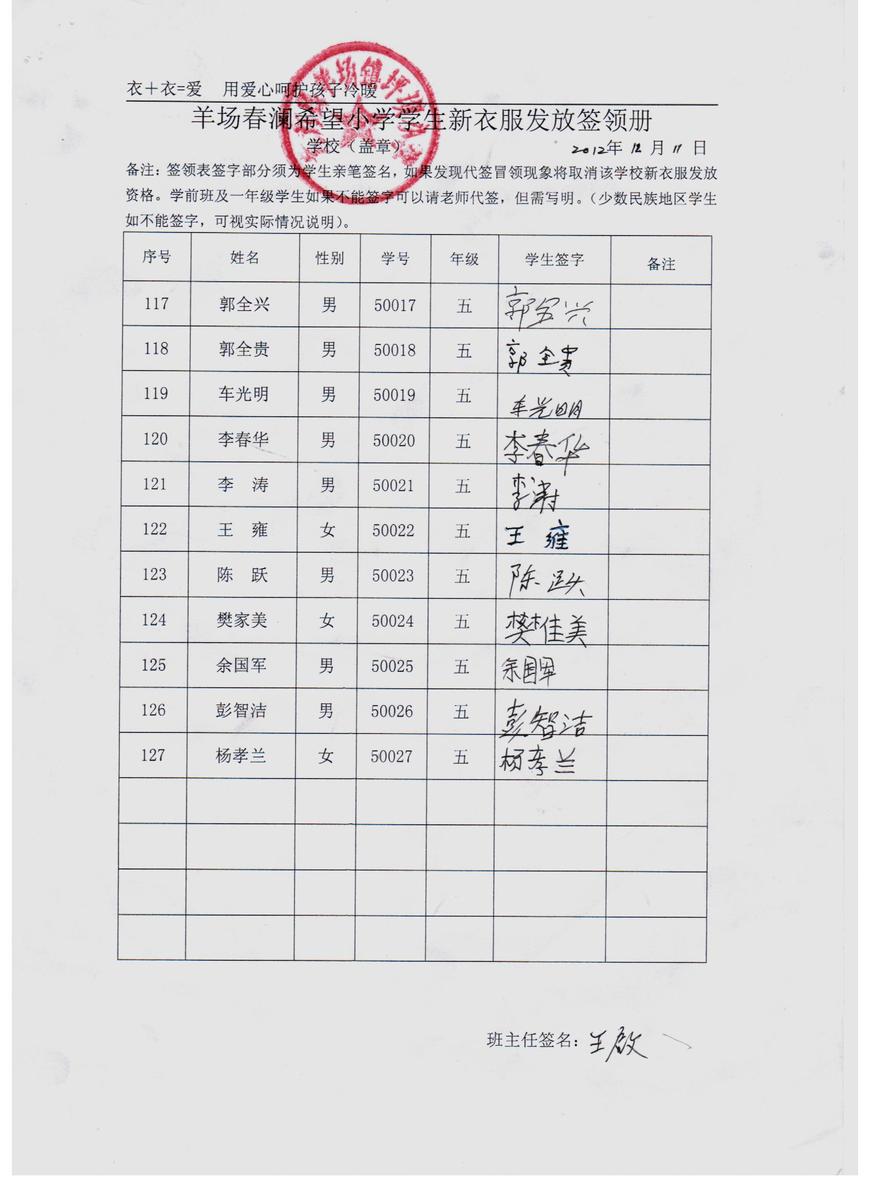 衣+衣=爱 用爱心呵护孩子冷暖
羊场春澜希望小学学生新衣服发放签领册
学校（盖章） 2012年 12 月 11 日
备注：签领表签字部分须为学生亲笔签名，如果发现代签冒领现象将取消该学校新衣服发放
资格。学前班及一年级学生如果不能签字可以请老师代签，但需写明。（少数民族地区学生
如不能签字，可视实际情况说明）。
序号 姓名 性别 学号 年级 学生签字 备注
117 郭全兴 男 50017 五 郭全兴
118 郭全贵 男 50018 五 郭全贵
119 车光明 男 50019 五 车光明
120 李春华 男 50020 五 李春华
121 李 涛 男 50021 五 李涛
122 王 雍 女 50022 五 王 雍
123 陈 跃 男 50023 五 陈 跃
124 樊家美 女 50024 五 樊佳美
125 余国军 男 50025 五 余国军
126 彭智洁 男 50026 五 彭智洁
127 杨孝兰 女 50027 五 杨孝兰
班主任签名：王啟